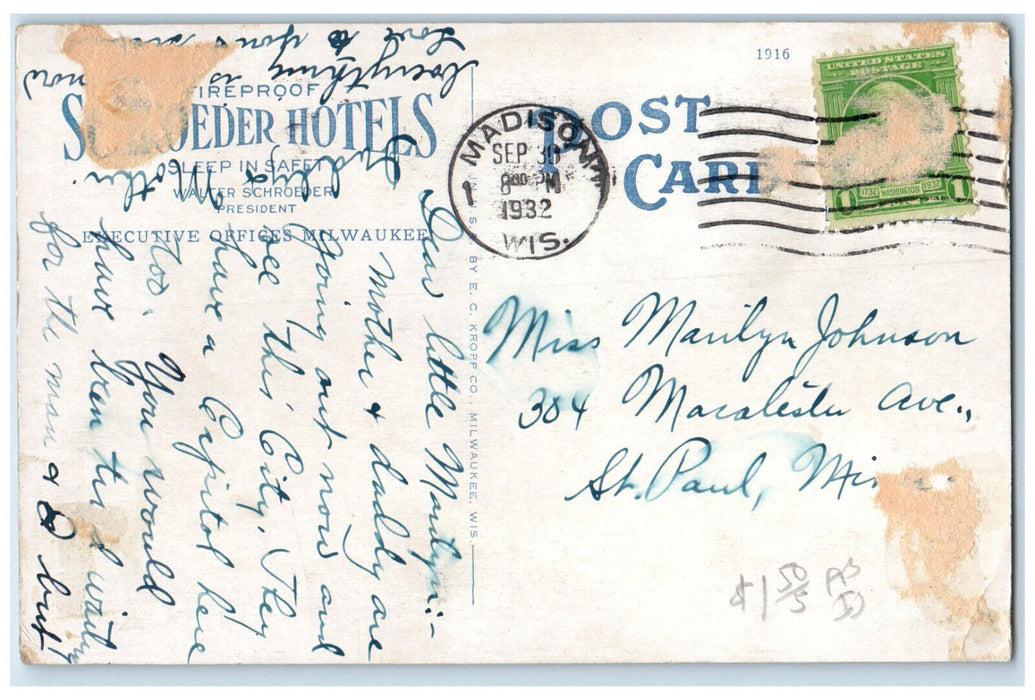 1916
UNITED STATES
POSTAGE
1732 WASHINGTON 1932
1
POST
CARD
MADISON
SEP 30
8 PM
1932
WIS.
1
FIREPROOF
SCHROEDER HOTELS
SLEEP IN SAFETY
WALTER SCHROEDER
PRESIDENT
EXECUTIVE OFFICES MILWAUKEE
BY E. C. KROPP CO., MILWAUKEE, WIS.
Miss Marilyn Johnson
304 Macalester Ave.,
St. Paul, Minn.
Dear little Marilyn:-
Mother & daddy are
going out now and
see this City. They
have a Capitol here
too. You would
have been tired waiting
for the man & I but
now
everything is
Love to you
Daddy &
Mother
$1 50